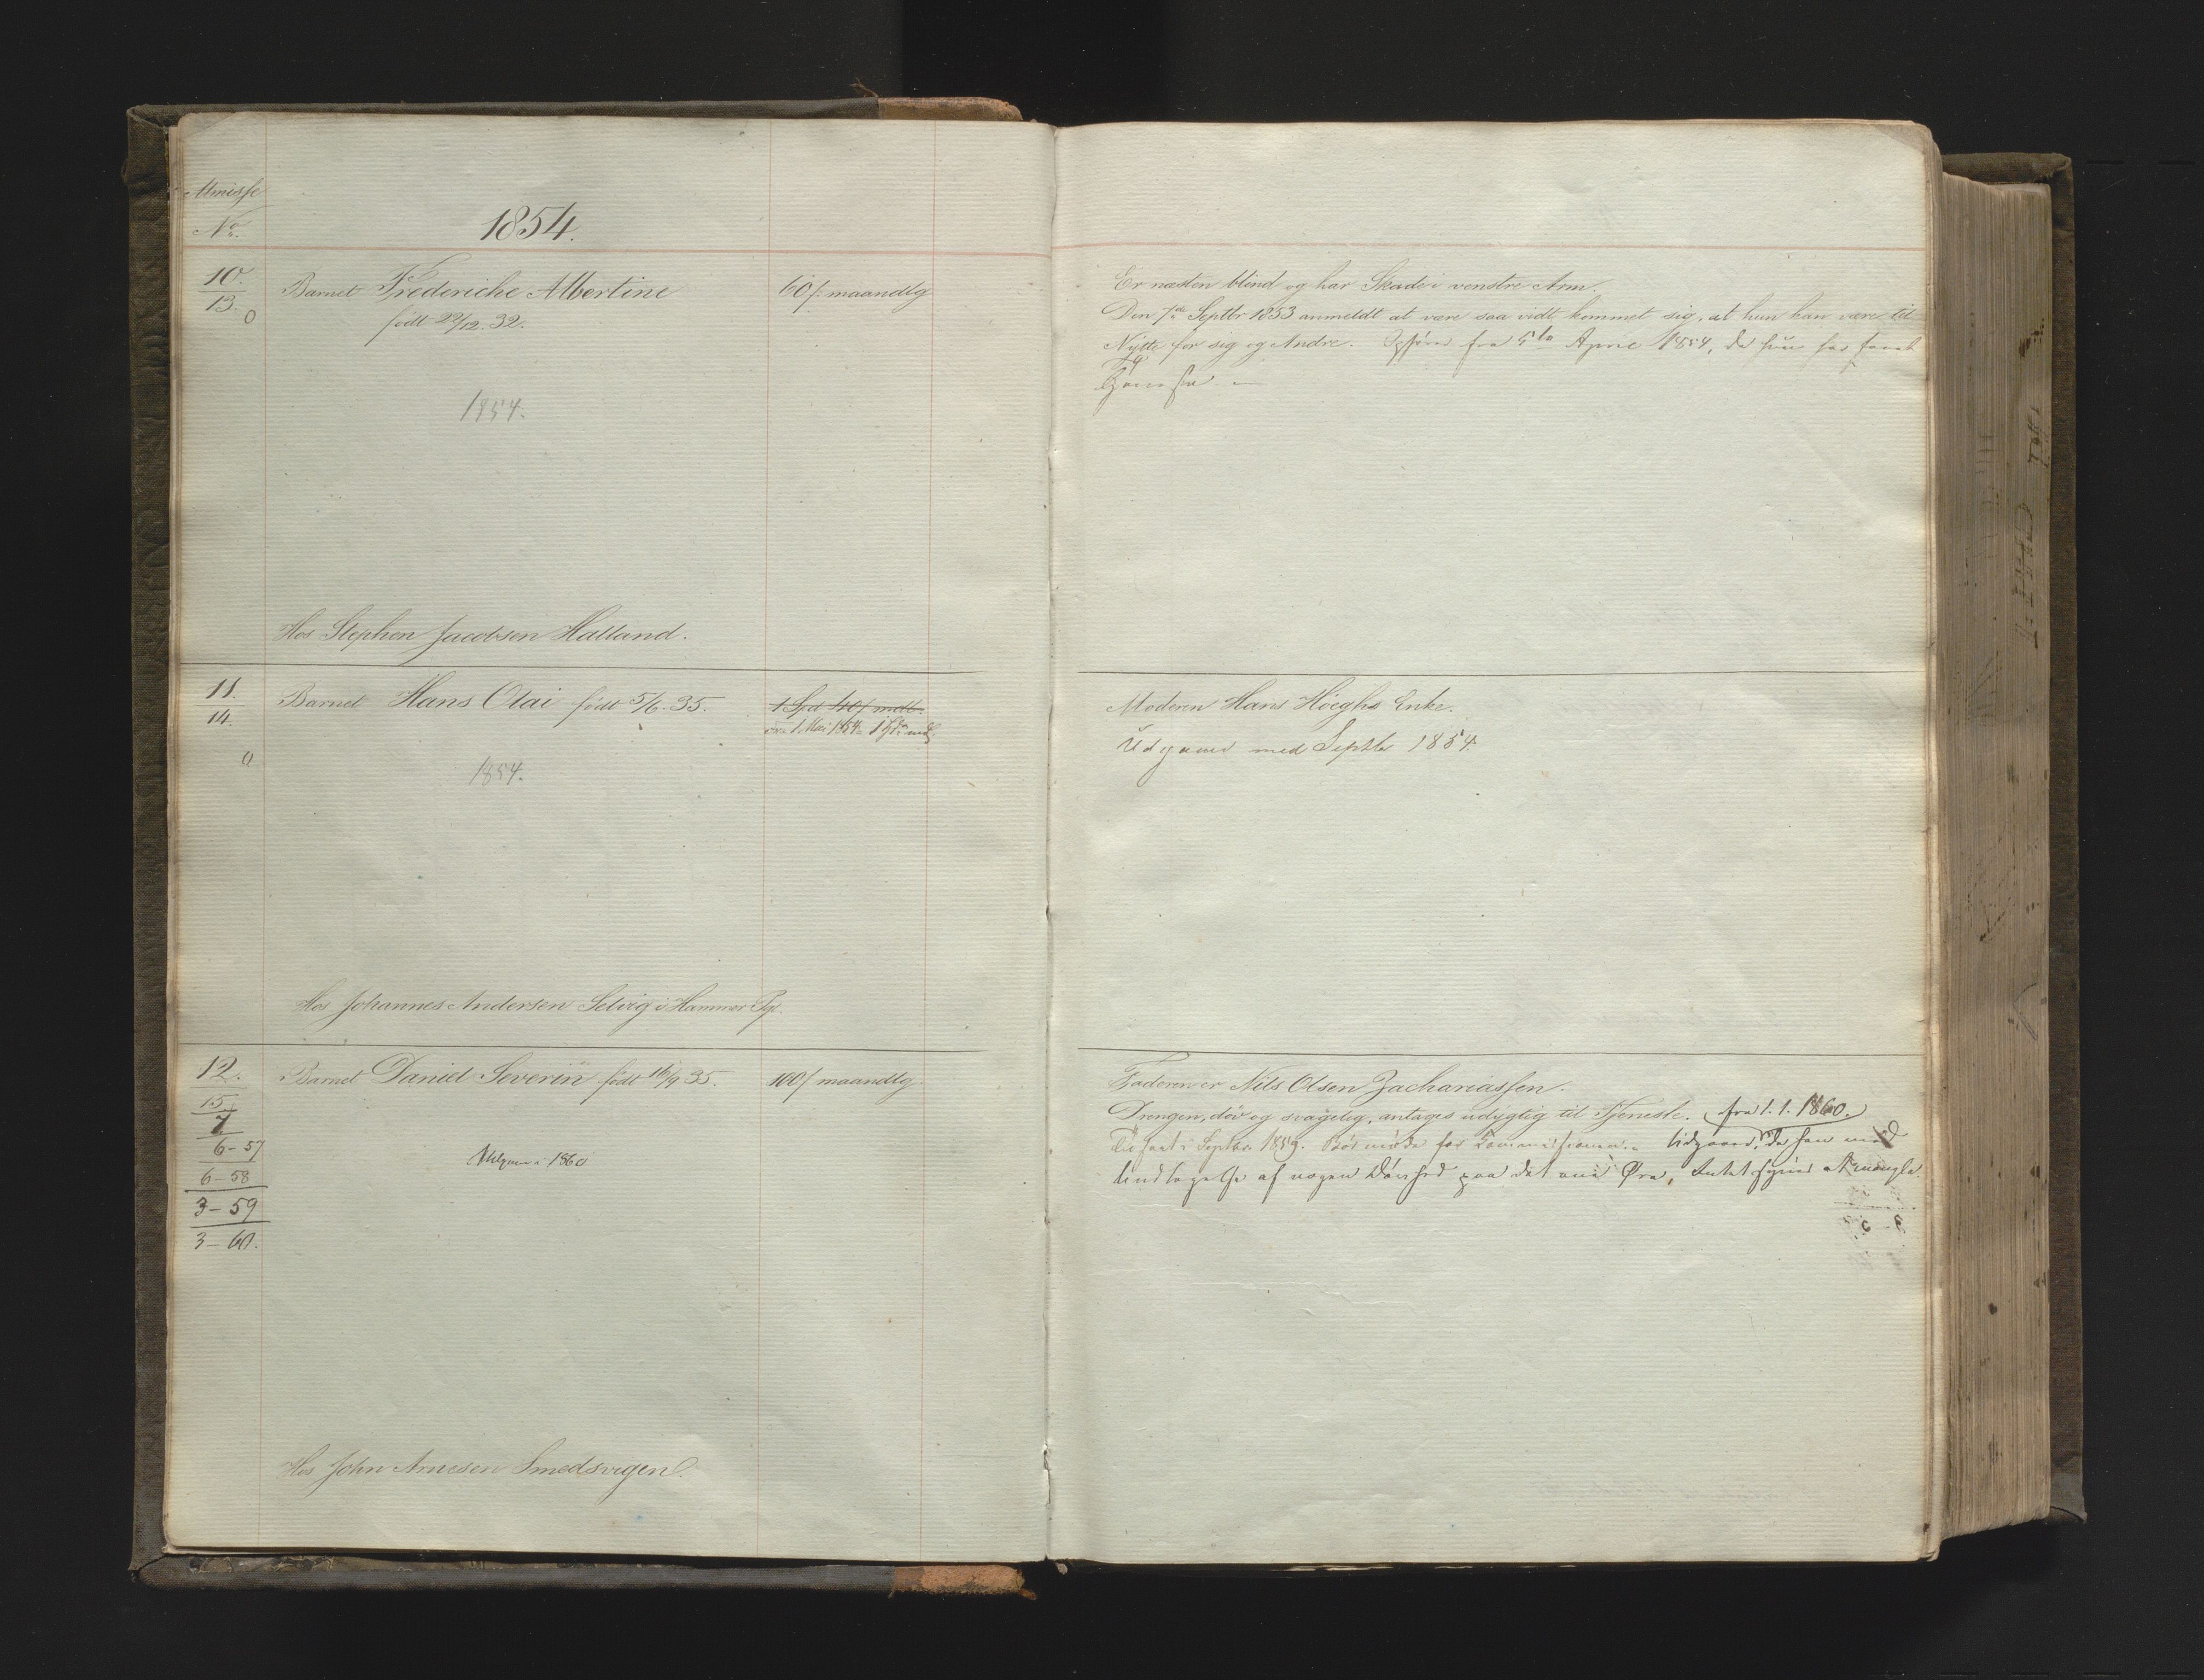 Almisse
No.
1854.
10.
13.
0
Barnet Frederiche Albertine
født 22/12. 32.
60 s. maandlg
1854.
Hos Stephen Jacobsen Halland.
11.
14.
0
Barnet Hans Olai født 5/6. 35.
1 Spd 40 s mdl.
fra 1 Mai 1854
1854.
Hos Johannes Andersen Selvig i Hammer Pgl.
12.
15.
7
6-57
6-58
3-59
3-60.
Barnet Daniel Severin født 16/9 35.
100 s maandlg
Udgaaer 1860
Hos John Arnesen Smedsvigen.
Er næsten blind og har Skade i venstre Arm.
Den 7de Septbr 1853 anmeldt at være saa vidt kommet sig, at hun kan være til
Nytte for sig og Andre. Ophører fra 5te April 1854, da hun har faaet
Moderen Hans Höeghs Enke.
Udgaaer med Septbr 1854
Faderen er Nils Olsen Zachariassen.
Drengen, døv og svagelig, antages udygtig til Tjeneste. fra 1.1.1860.
i Septbr 1859. Bør møde for Commissionen. Udgaaer, da han med
Undtagelse af nogen Døvhed paa det ene Øre, Intet synes at mangle.